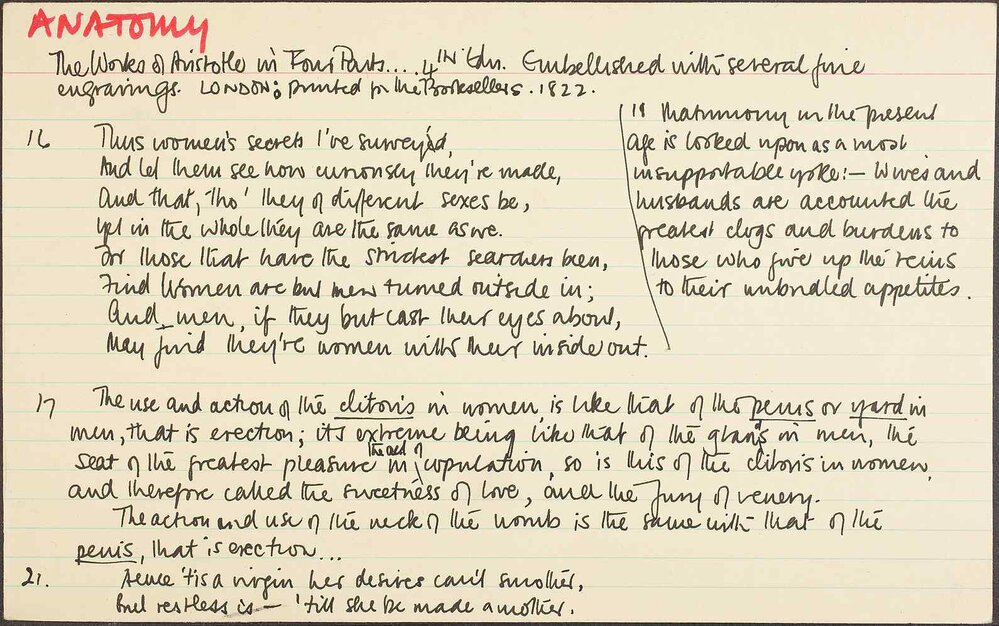 ANATOMY
The Works of Aristotle in Four Parts.... 4TH Edn. Embellished with several fine
engravings. LONDON: printed for the Booksellers. 1822.
16 Thus women's secrets I've survey'd,
And let them see how curiously they're made,
And that, tho' they of different sexes be,
Yet in the whole they are the same as we.
For those that have the strictest searchers been,
Find Women are but men turned outside in;
And men, if they but cast their eyes about,
May find they're women with their inside out.
18 Matrimony in the present
age is looked upon as a most
insupportable yoke:— Wives and
husbands are accounted the
greatest clogs and burdens to
those who give up the reins
to their unbridled appetites.
17 The use and action of the clitoris in women, is like that of the penis or yard in
men, that is erection; its extreme being like that of the glans in men, the
seat of the greatest pleasure in the act of copulation, so is this of the clitoris in women,
and therefore called the sweetness of love, and the fury of venery.
The action and use of the neck of the womb is the same with that of the
penis, that is erection...
21. Hence 'tis a virgin her desires can't smother,
But restless is — 'till she be made a mother.